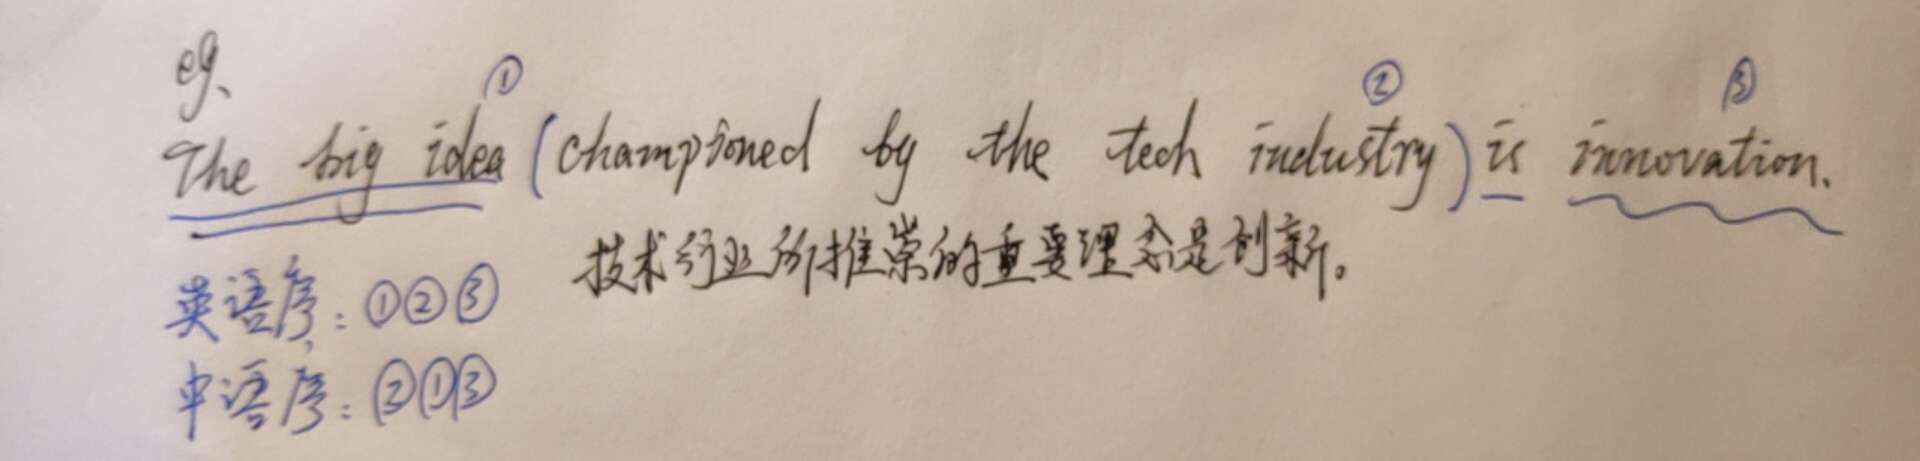 eg、
① ② ③
The big idea (championed by the tech industry) is innovation.
技术行业所推崇的重要理念是创新。
英语序：①②③
中语序：②①③